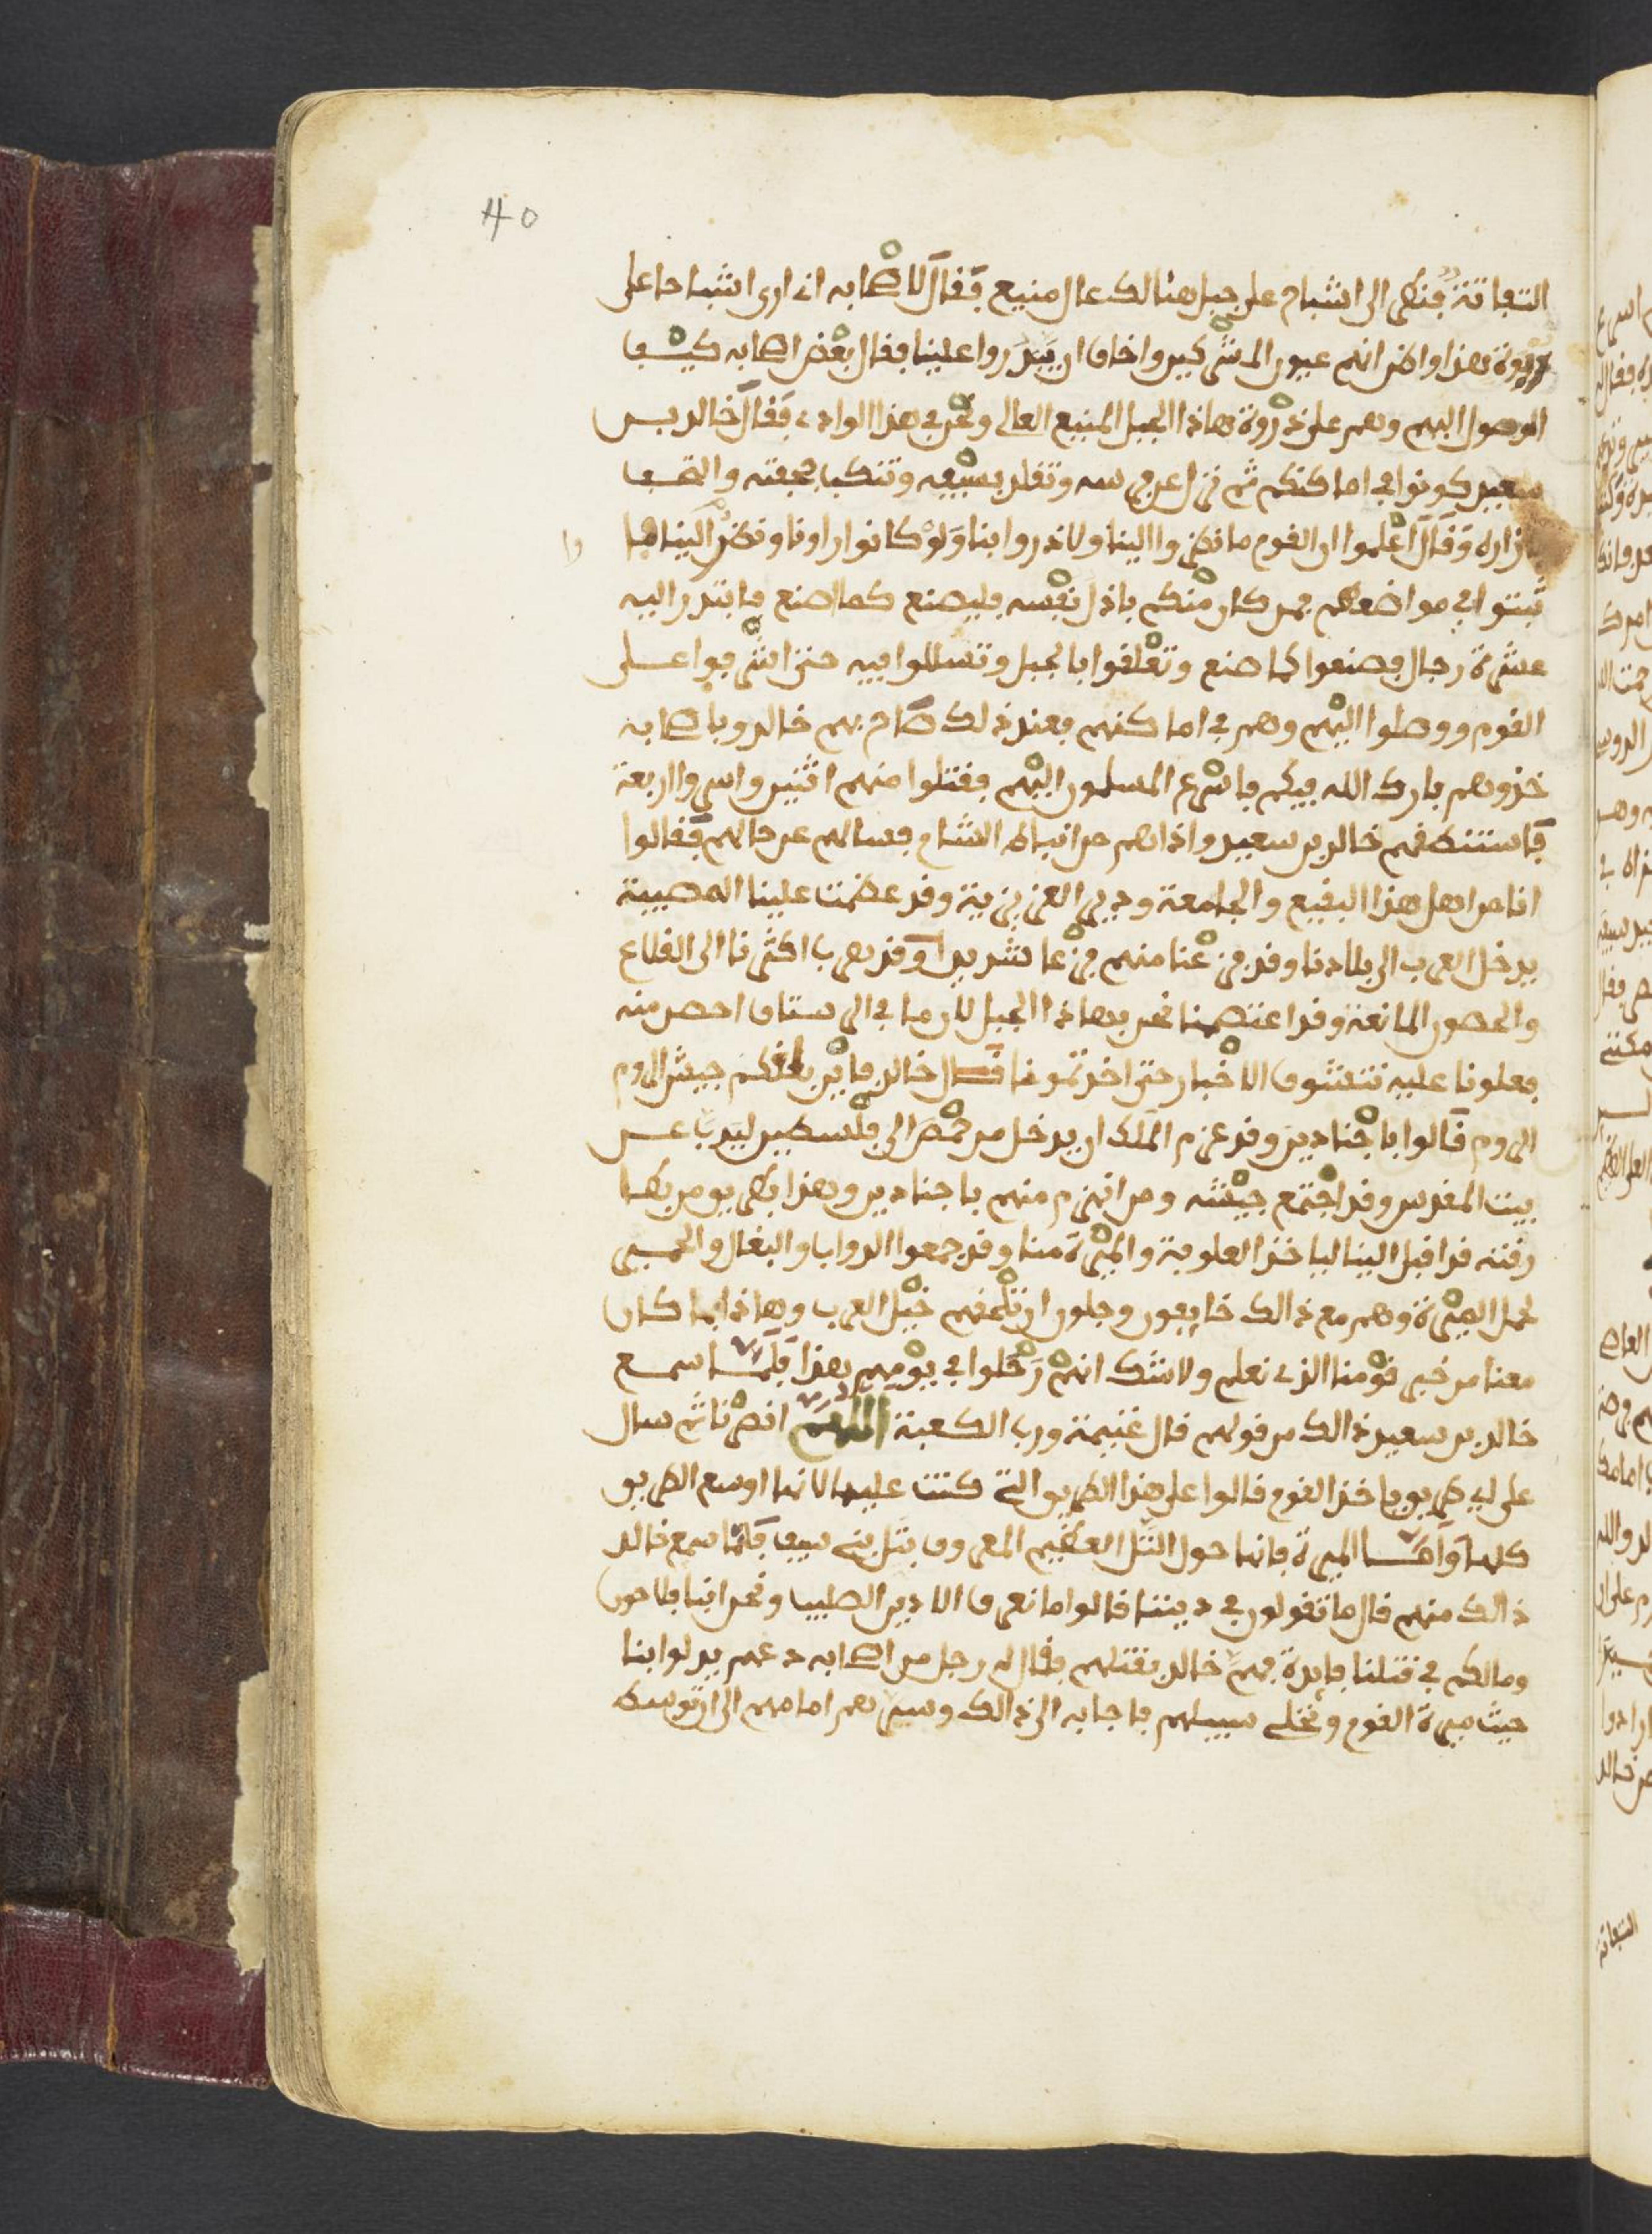 40
التفاتة فنظر الى اشباح على جبل هنالك عال منيع فقال لاصحابه اني ارى اشباحا على
ذروة هذا واظن انهم عيون المشركين واخاف ان يبدروا علينا فقال بعض اصحابه كيف
الوصول اليهم وهم على ذروة هاذا الجبل المنيع العالي ونحن في هذا الوادي فقال خالد بن
سعيد كونوا في اماكنكم ثم نزل عن فرسه وتقلد بسيفه وتنكب بجحفته والتحف
بازاره وقال اعلموا ان القوم ما نظروا الينا ولا ندروا بنا ولو كانوا راونا ونظروا الينا ما
ثبتوا في مواضعهم فمن كان منكم باذل نفسه فليصنع كما اصنع فابتدر اليه
عشرة رجال فصنعوا كما صنع وتعلقوا بالجبل وتسللوا فيه حتى اشرفوا على
القوم ووصلوا اليهم وهم في اماكنهم فعند ذلك صاح بهم خالد وباصحابه
خذوهم بارك الله فيكم فاسرع المسلمون اليهم فقتلوا منهم اثنين واسروا اربعة
فاستنطقهم خالد بن سعيد واذا هم من انباط الشام فسالهم عن حالهم فقالوا
انا من اهل هذا البقيع والجامعة ودير العزيزية وقد عظمت علينا المصيبة
بدخل العرب الى بلادنا وقد فزعنا منهم فزعا شديدا وقد هرب اكثرنا الى القلاع
والحصون المانعة وقد اعتصمنا نحن بهاذا الجبل لان ما في الرستاق احصن منه
فعلونا عليه نتشوف الاخبار حتى اخذتمونا قال خالد فاين بلغكم جيش الروم
الروم قالوا باجنادين وقد عزم الملك ان يدخل من حمص الى فلسطين ليدب عن
بيت المقدس وقد اجتمع جيشه ومن انهزم منهم باجنادين وهذا بطريق من بطا
رقته قد اقبل الينا لياخذ العلوفة والميرة منا وقد جمعوا الدواب والبغال والحمير
لحمل الميرة وهم مع ذالك خايفون وجلون ان تلحقهم خيل العرب وهاذا ما كان
معنا من خبر قومنا الذي نعلم ولا شك انهم رحلوا في يومهم هذا فلما سمع
خالد بن سعيد ذالك من قولهم قال غنيمة ورب الكعبة اللهم انصرنا ثم سال
على اي طريق ياخذ القوم قالوا على هذا الطريق التي كنت عليها لانها اوسع الطريق
كلها واما الميرة فانها حول التل العظيم المعروف بتل بني سيف فلما سمع خالد
ذالك منهم قال ما تقولون في ديننا قالوا ما نعرف الا دين الصليب ونحن اننا فلاحون
ومالكم في قتلنا فايدة فهم خالد بقتلهم فقال له رجل من اصحابه دعهم يدلوا بنا
حيث ميرة القوم ونخلي سبيلهم فاجابه الى ذالك وسيرهم امامهم الى ان توسط